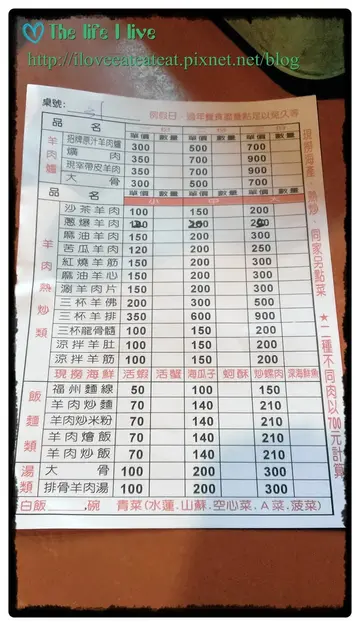 The life I live
http://iloveeateateat.pixnet.net/blog
桌號:
品 名 單價 數量 單價 數量 單價 數量
羊肉爐
招牌原汁羊肉爐 300 500 700
爌肉 350 700 900
現宰帶皮羊肉 350 700 900
大骨 300 500 700
品 名 單價 數量 單價 數量 單價 數量
小 中 大
羊肉熱炒類
沙茶羊肉 100 150 200
蔥爆羊肉
麻油羊肉 150 200 300
苦瓜羊肉 120 200 250
紅燒羊筋 150 200 300
麻油羊心 150 200 300
涮羊肉片 150 200 300
三杯羊佛 200 300 500
三杯羊排 350 600 900
三杯龍骨髓 100 150 200
涼拌羊肚 100 150 200
涼拌羊筋 100 150 200
現撈海鮮 活蝦 活蟹 海瓜子 蚵酥 炒螺肉 深海鮮魚
飯麵類
福州麵線 50 100 150
羊肉炒麵 70 140 210
羊肉炒米粉 70 140 210
羊肉燴飯 70 140 210
羊肉炒飯 70 140 210
湯類
大骨 100 200 300
排骨羊肉湯 100 200 300
白飯 碗 青菜(水蓮.山蘇.空心菜.A菜.菠菜)
現撈海產、熱炒,同家另點菜
★二種不同肉以700元計算